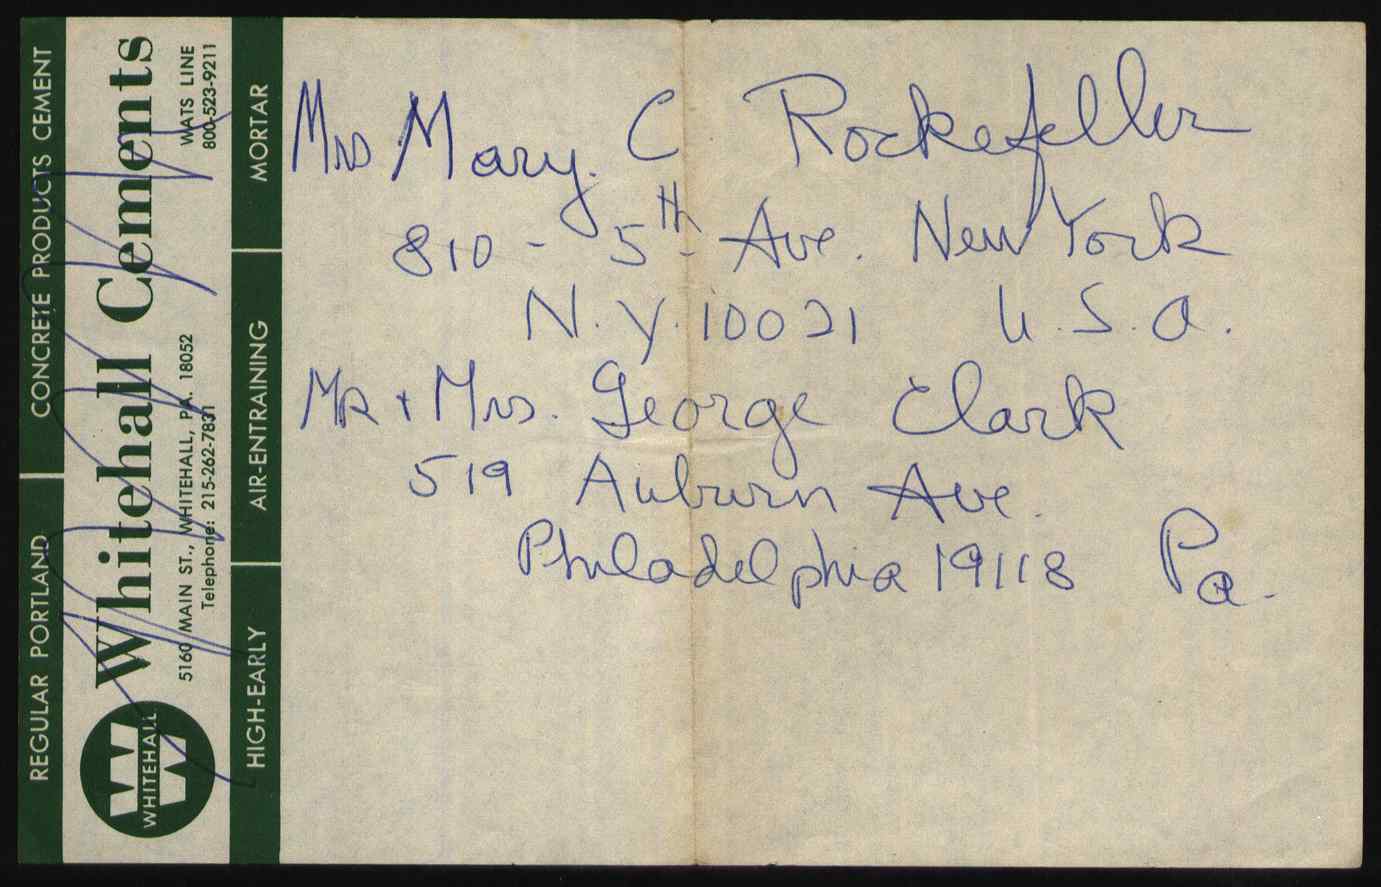 REGULAR PORTLAND CONCRETE PRODUCTS CEMENT
WHITEHALL
Whitehall Cements
5160 MAIN ST., WHITEHALL, PA. 18052
Telephone: 215-262-7831
WATS LINE
800-523-9211
HIGH-EARLY AIR-ENTRAINING MORTAR
Mrs Mary. C Rockefeller
810 - 5th Ave. New York
N.Y. 10021 U.S.A.
Mr + Mrs. George Clark
519 Auburn Ave.
Philadelphia 19118 Pa.